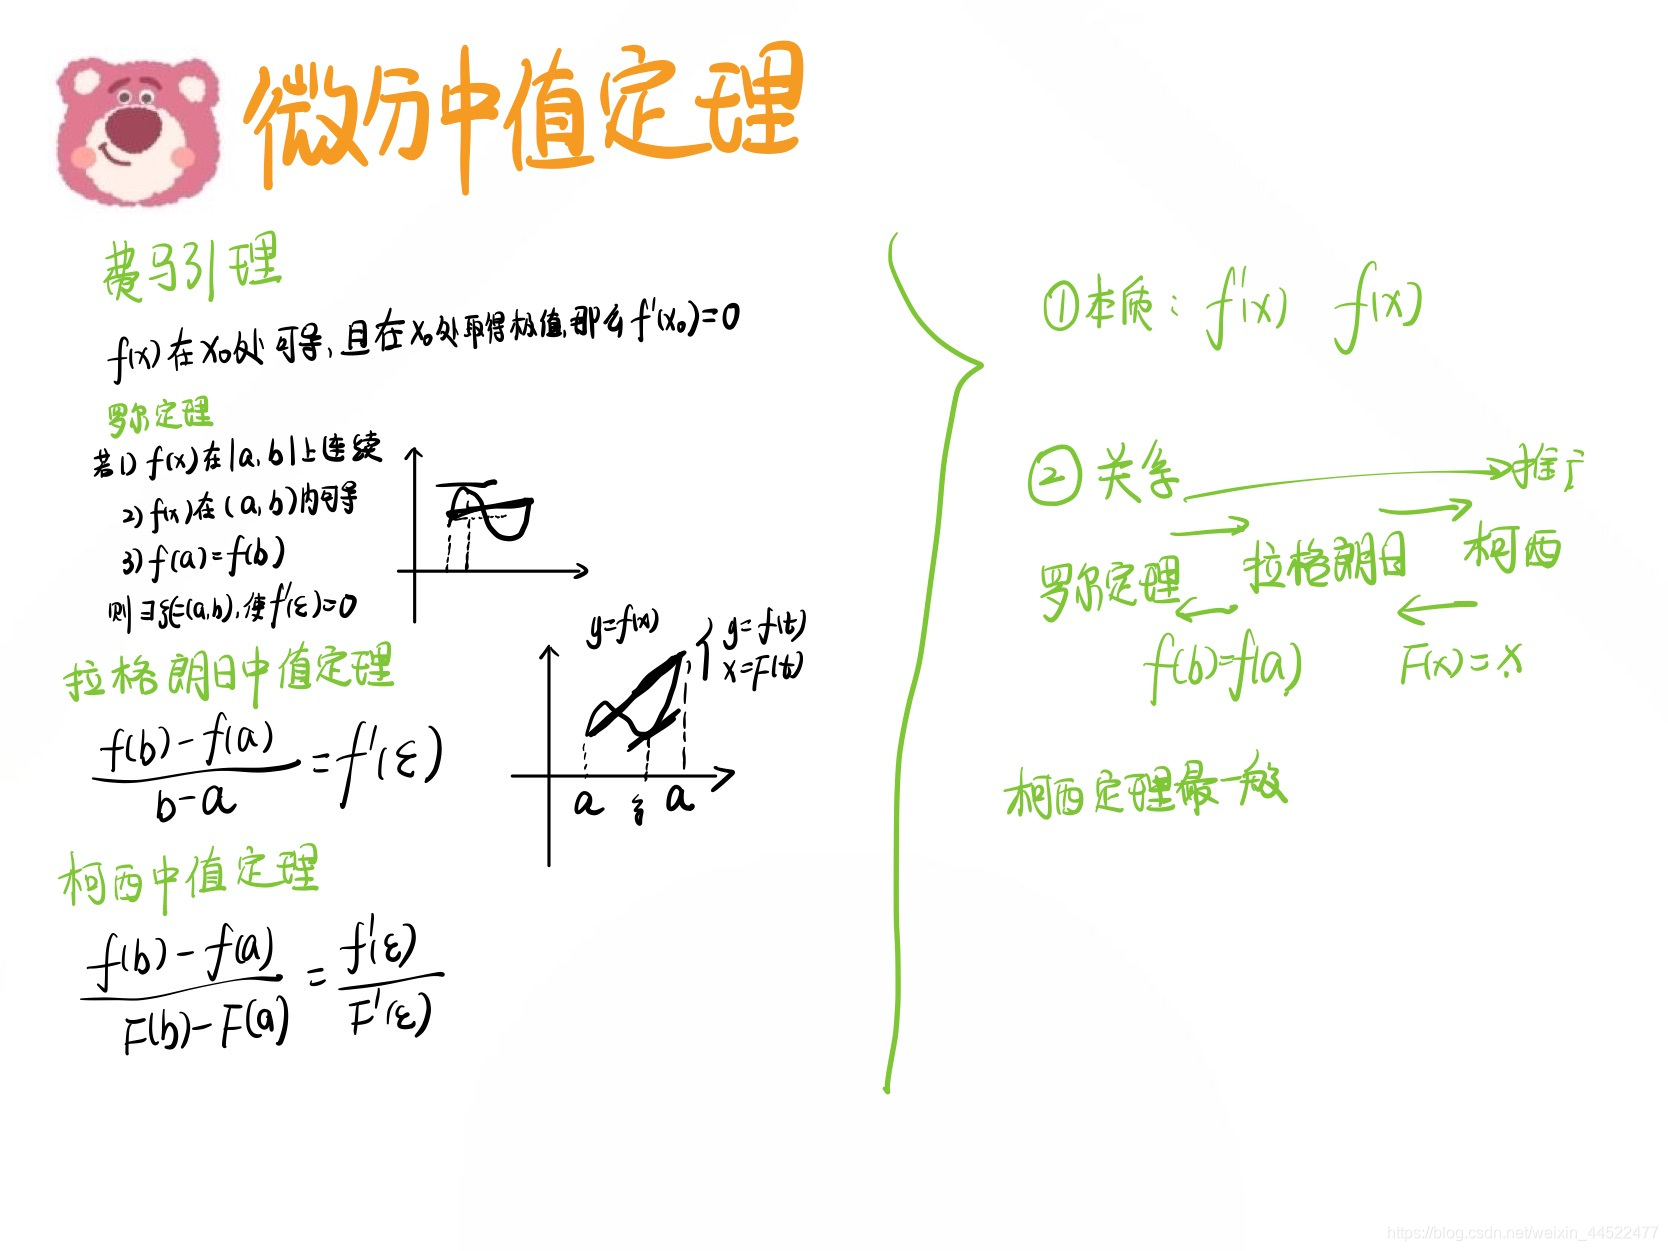 微分中值定理
费马引理
f(x)在x₀处可导,且在x₀处取得极值,那么f'(x₀)=0
罗尔定理
若1) f(x)在|a,b|上连续
2) f(x)在(a,b)内可导
3) f(a)=f(b)
则∃ξ∈(a,b),使f'(ε)=0
拉格朗日中值定理
f(b)-f(a)
b-a
=f'(ε)
y=f(x)
y=f(t)
x=F(t)
a ξ a
柯西中值定理
f(b)-f(a)
F(b)-F(a)
=
f'(ε)
F'(ε)
①本质: f'(x) f(x)
②关系 → 推广
罗尔定理 → 拉格朗日 → 柯西
← ←
f(b)=f(a) F(x)=x
柯西定理最一般
https://blog.csdn.net/weixin_44522477